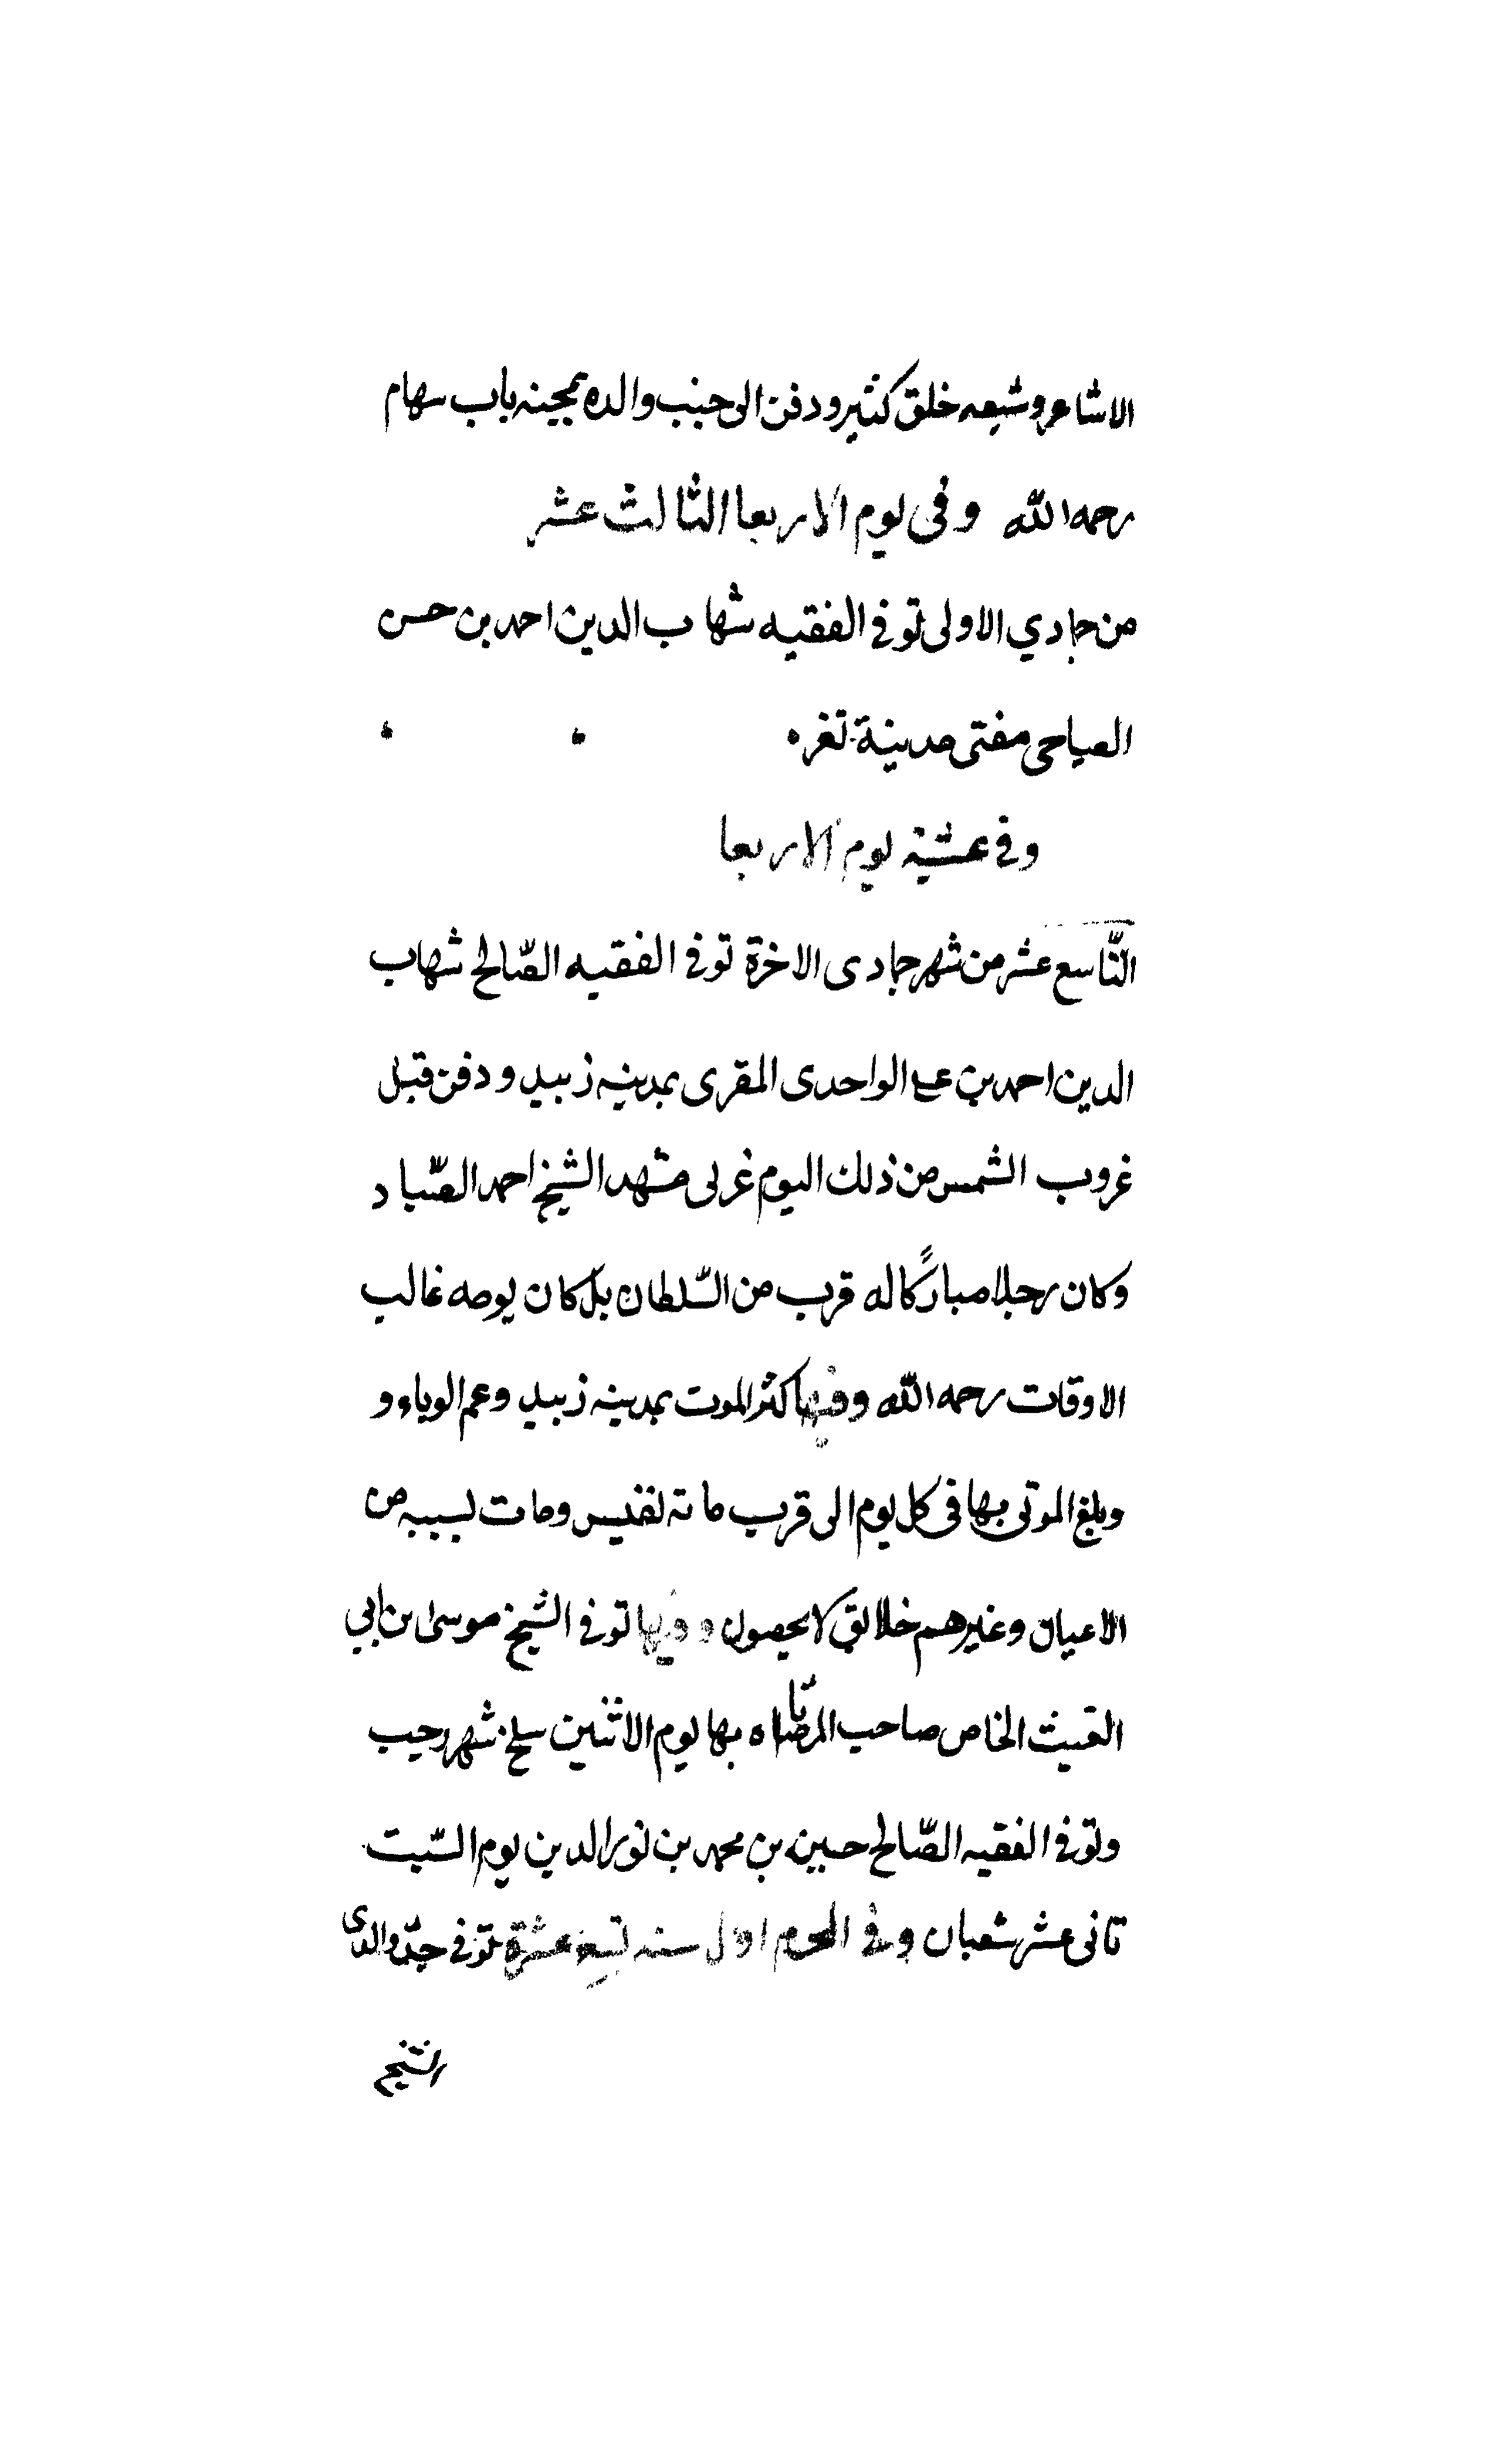 الاشاعر وشيعه خلق كثير ودفن الى جنب والده بمجينه باب سهام
رحمه الله وفى يوم الاربعا الثالث عشر
من جمادي الاولى توفي الفقيه شهاب الدين احمد بن حسن
مفتى مدينة تغر
وفي عشية يوم الاربعا
التاسع عشر من شهر جمادى الاخرة توفي الفقيه الصّالح شهاب
الدين احمد بن على الواحدى المقرى بمدينه زبيد ودفن قبل
غروب الشمس من ذلك اليوم غربى مشهد الشيخ احمد الصّياد
وكان رجلا مباركًا له قرب من السّلطان بل كان يومه غالب
الاوقات رحمه الله وفيها كثر الموت بمدينه زبيد وعم الوباء و
وبلغ الموتى بها فى كل يوم الى قرب مائه نفس ومات بسببه من
الاعيان وغيرهم خلائق لا يحصون وفيها توفي الشيخ موسى بن ابي
الغيث الخاص صاحب بها يوم الاثنين سلخ شهر رجب
وتوفي الفقيه الصّالح حسين بن محمد بن نور الدين يوم السّبت
ثانى عشر شعبان وفي المحرم اول سنه تسع عشرة توفي جدّ والدى
الشيخ